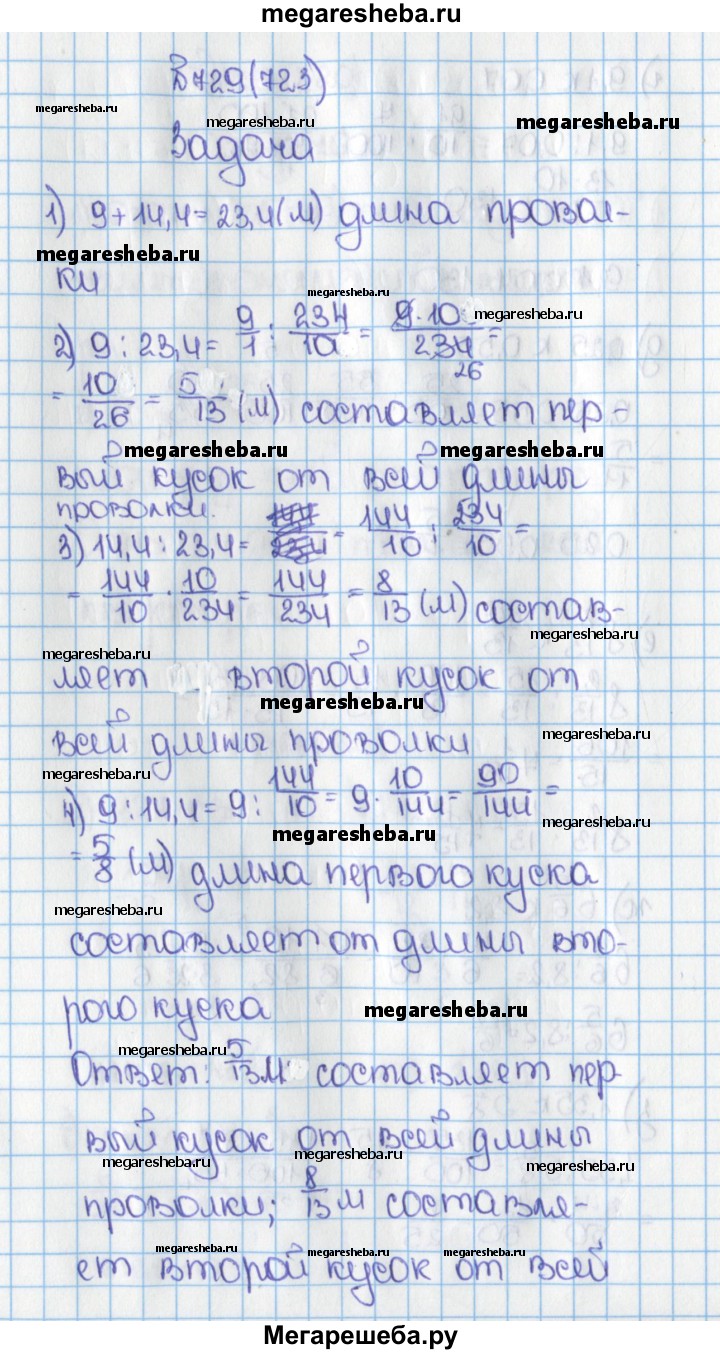 megaresheba.ru
№729(723)
megaresheba.ru megaresheba.ru megaresheba.ru
Задача
1) 9+14,4=23,4(м) длина провол-
megaresheba.ru
ки
megaresheba.ru
2) 9:23,4= 9/1 : 234/10 = 9·10/234 = megaresheba.ru
26
= 10/26 = 5/13 (м) составляет пер-
megaresheba.ru megaresheba.ru
вый кусок от всей длины
проволки.
3) 14,4:23,4= = 144/10 : 234/10 =
= 144/10 · 10/234 = 144/234 = 8/13 (м) состав-
megaresheba.ru
megaresheba.ru
ляет второй кусок от
megaresheba.ru
всей длины проволки
megaresheba.ru
megaresheba.ru
4) 9:14,4= 9: 144/10 = 9· 10/144 = 90/144 =
megaresheba.ru megaresheba.ru
= 5/8 (м) длина первого куска
megaresheba.ru
составляет от длины вто-
рого куска megaresheba.ru
megaresheba.ru
Ответ: 5/13 м составляет пер-
вый кусок от всей длины
megaresheba.ru megaresheba.ru megaresheba.ru
проволки; 8/13 м составля-
megaresheba.ru megaresheba.ru megaresheba.ru
ет второй кусок от всей
Мегарешеба.ру